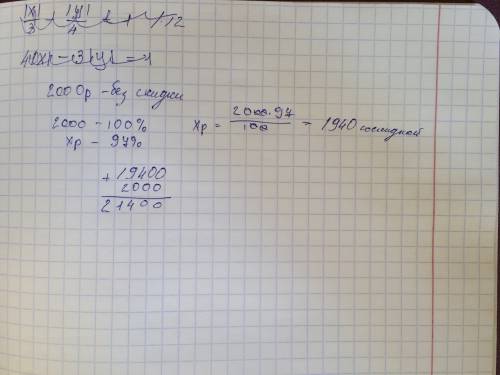 |x|/3 + |y|/4 = 1 /·12
4|x| - 3|y| = 1
2000р - без скидки
2000 - 100%
хр - 97%
хр = 2000·97/100 = 1940 со скидкой
+ 19400
2000
21400